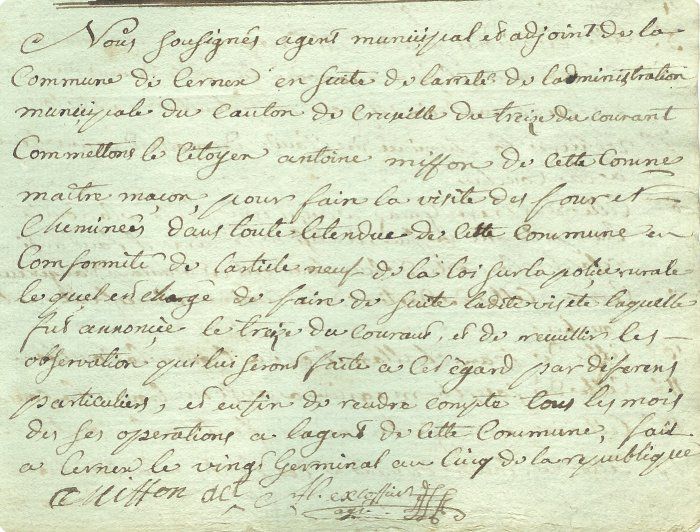 Nous sousignés agent municipal et adjoint de la
Commune de Cernex en suite de larreté de ladministration
municipale du Canton de Cruseille du treize du courant
Commettons le Citoyen antoine miffon de cette Comne
maître maçon, pour faire la visite des four et
Cheminées dans toute letendue de cette Commune en
Comformité de larticle neuf de la loi sur la police rurale
le quel en chargé de faire de suite ladite visite laquelle
fut annoncée le treize du courant, et de receuillir les
observation qui lui seront faite a cet égard par diferens
particuliers, et enfin de rendre compte tous les mois
des ses operations a lagent de cette Commune, fait
a Cernex le vingt Germinal an Cinq de la republique
Miffon
agt.